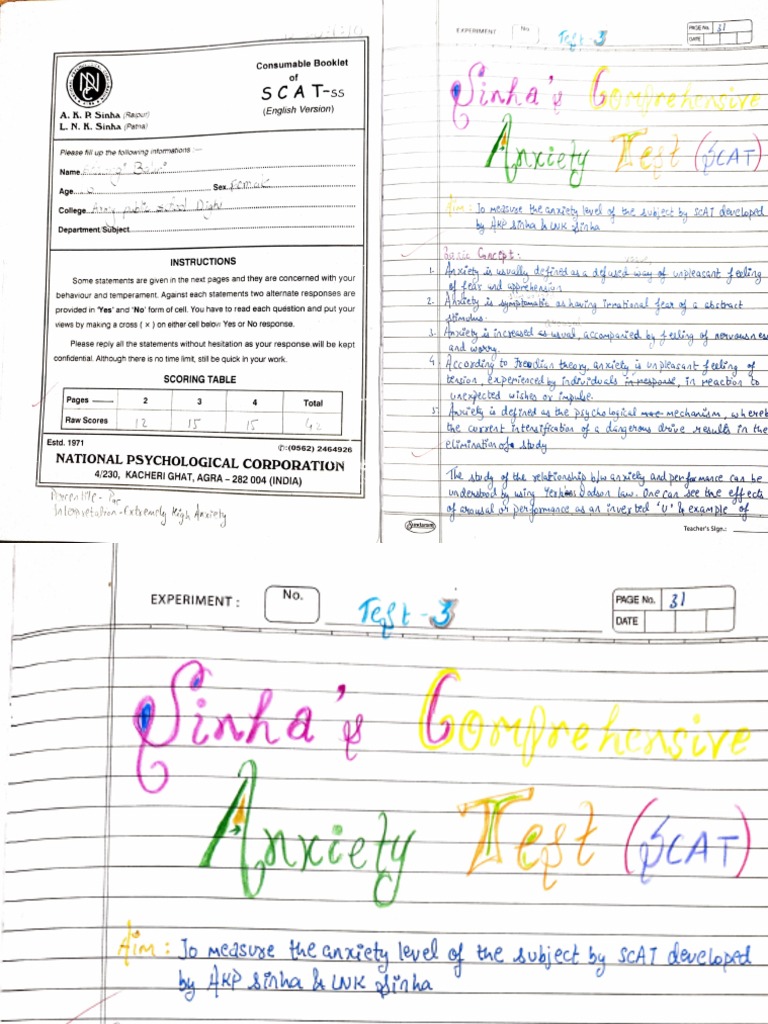 Consumable Booklet
of
SCAT-SS
(English Version)
A. K. P. Sinha (Raipur)
L. N. K. Sinha (Patna)
Please fill up the following informations :—
Name
Age Sex Female
College Army public school
Department Subject
INSTRUCTIONS
Some statements are given in the next pages and they are concerned with your
behaviour and temperament. Against each statements two alternate responses are
provided in 'Yes' and 'No' form of cell. You have to read each question and put your
views by making a cross ( × ) on either cell below Yes or No response.
Please reply all the statements without hesitation as your response will be kept
confidential. Although there is no time limit, still be quick in your work.
SCORING TABLE
Pages 2 3 4 Total
Raw Scores 12 15 15 42
Estd. 1971 ✆:(0562) 2464926
NATIONAL PSYCHOLOGICAL CORPORATION
4/230, KACHERI GHAT, AGRA – 282 004 (INDIA)
Interpretation - Extremely High Anxiety
EXPERIMENT No. Test - 3 PAGE No. 31
DATE
Sinha's Comprehensive
Anxiety Test (SCAT)
Aim : To measure the anxiety level of the subject by SCAT developed
by AKP Sinha & LNK Sinha
Basic Concept :
1. Anxiety is usually defined as a defused way of unpleasant feeling
of fear and apprehension
2. Anxiety is symptomatic as having irrational fear of a abstract
stimulus.
3. Anxiety is increased as usual, accompanied by feeling of nervousness
and worry.
4. According to Freudian theory, anxiety is unpleasant feeling of
tension, experienced by individuals in response, in reaction to
unexpected wishes or impulse.
5. Anxiety is defined as the psychological mechanism, whereb
the current intensification of a dangerous drive results in the
elimination of study
The study of the relationship b/w anxiety and performance can be
understood by using Yerkes Dodson law. One can see the effects
of arousal or performance as an inverted 'U' & example of
Sundaram Teacher's Sign.:
EXPERIMENT : No. Test - 3 PAGE No. 31
DATE
Sinha's Comprehensive
Anxiety Test (SCAT)
Aim : To measure the anxiety level of the subject by SCAT developed
by AKP Sinha & LNK Sinha